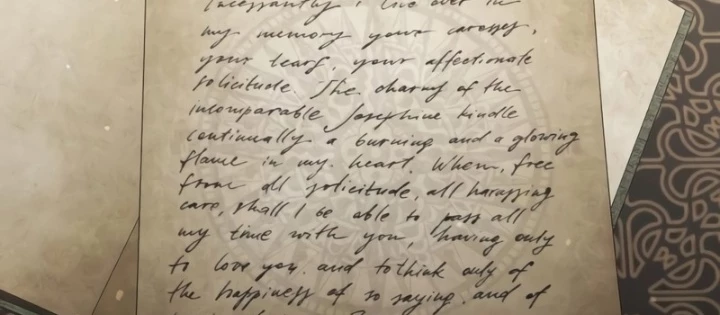 Incessantly I live over in
my memory your caresses,
your tears, your affectionate
solicitude. The charms of the
incomparable Josephine kindle
continually a burning and a glowing
flame in my heart. When, free
from all solicitude, all harassing
care, shall I be able to pass all
my time with you, having only
to love you, and to think only of
the happiness of so saying, and of